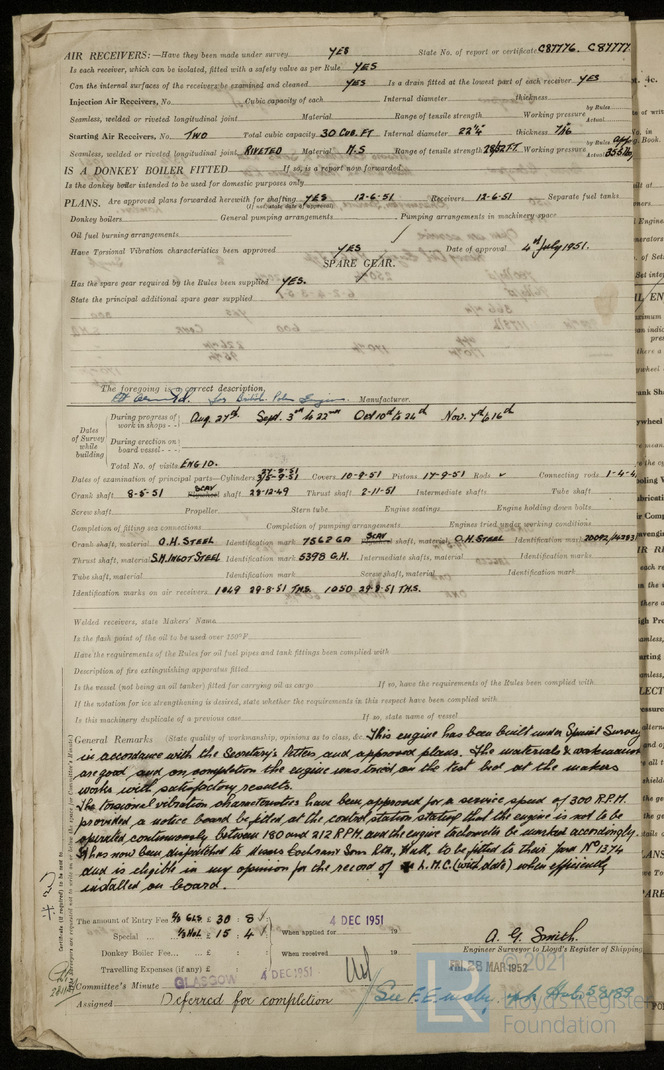 AIR RECEIVERS:—Have they been made under survey YES State No. of report or certificate C87776. C87777
Is each receiver, which can be isolated, fitted with a safety valve as per Rule YES
Can the internal surfaces of the receivers be examined and cleaned YES Is a drain fitted at the lowest part of each receiver YES
Injection Air Receivers, No. Cubic capacity of each Internal diameter thickness
Seamless, welded or riveted longitudinal joint Material Range of tensile strength Working pressure by Rules Actual
Starting Air Receivers, No. TWO Total cubic capacity 30 CUB. FT Internal diameter 22¼" thickness 7/16 by Rules
Seamless, welded or riveted longitudinal joint RIVETED Material M.S Range of tensile strength 28/32 T Working pressure Actual
IS A DONKEY BOILER FITTED If so, is a report now forwarded
Is the donkey boiler intended to be used for domestic purposes only
PLANS. Are approved plans forwarded herewith for shafting YES 12-6-51 Receivers 12-6-51 Separate fuel tanks
(If not, state date of approval)
Donkey boilers General pumping arrangements Pumping arrangements in machinery space
Oil fuel burning arrangements
Have Torsional Vibration characteristics been approved YES Date of approval 4th July 1951.
SPARE GEAR.
Has the spare gear required by the Rules been supplied YES.
State the principal additional spare gear supplied
The foregoing is a correct description,
for British Polar Engines Manufacturer.
Dates of Survey while building
During progress of work in shops - - Aug. 27th Sept. 3rd to 22nd Oct 10th to 24th Nov. 7th to 16th
During erection on board vessel - - -
Total No. of visits ENG 10.
27-3-51
Dates of examination of principal parts—Cylinders 3/5-9-51 Covers 10-9-51 Pistons 17-9-51 Rods Connecting rods 1-4-4
Crank shaft 8-5-51 SCAV Flywheel shaft 28-12-49 Thrust shaft 2-11-51 Intermediate shafts Tube shaft
Screw shaft Propeller Stern tube Engine seatings Engine holding down bolts
Completion of fitting sea connections Completion of pumping arrangements Engines tried under working conditions
Crank shaft, material O.H. STEEL Identification mark 7562 GA SCAV shaft, material O.H. STEEL Identification mark
Thrust shaft, material S.M. INGOT STEEL Identification mark 5398 G.H. Intermediate shafts, material Identification marks
Tube shaft, material Identification mark Screw shaft, material Identification mark
Identification marks on air receivers 1049 29-8-51 T.H.S. 1050 29-8-51 T.H.S.
Welded receivers, state Makers' Name
Is the flash point of the oil to be used over 150°F
Have the requirements of the Rules for oil fuel pipes and tank fittings been complied with
Description of fire extinguishing apparatus fitted
Is the vessel (not being an oil tanker) fitted for carrying oil as cargo If so, have the requirements of the Rules been complied with
If the notation for ice strengthening is desired, state whether the requirements in this respect have been complied with
Is this machinery duplicate of a previous case If so, state name of vessel
General Remarks (State quality of workmanship, opinions as to class, &c. This engine has been built under Special Survey
in accordance with the Secretary's letters and approved plans. The materials & workmanship
are good and on completion the engine was tried on the test bed at the makers
works with satisfactory results.
The torsional vibration characteristics have been approved for a service speed of 300 R.P.M.
provided a notice board be fitted at the control station stating that the engine is not to be
operated continuously between 180 and 212 R.P.M. and the engine tachometer be marked accordingly.
It has now been dispatched to Messrs Cochrane & Sons Ltd, to be fitted to their Yard No 1374
and is eligible in my opinion for the record of L.M.C. (with date) when efficiently
installed on board.
The amount of Entry Fee £ 30 : 8
Special £ 15 : 4
Donkey Boiler Fee £
Travelling Expenses (if any) £
4 DEC 1951
When applied for 19
When received 19
A. G. Smith.
Engineer Surveyor to Lloyd's Register of Shipping
FRI. 28 MAR 1952
GLASGOW 4 DEC 1951
Committee's Minute
Assigned Deferred for completion
© 2021
LR
Lloyd's Register
Foundation